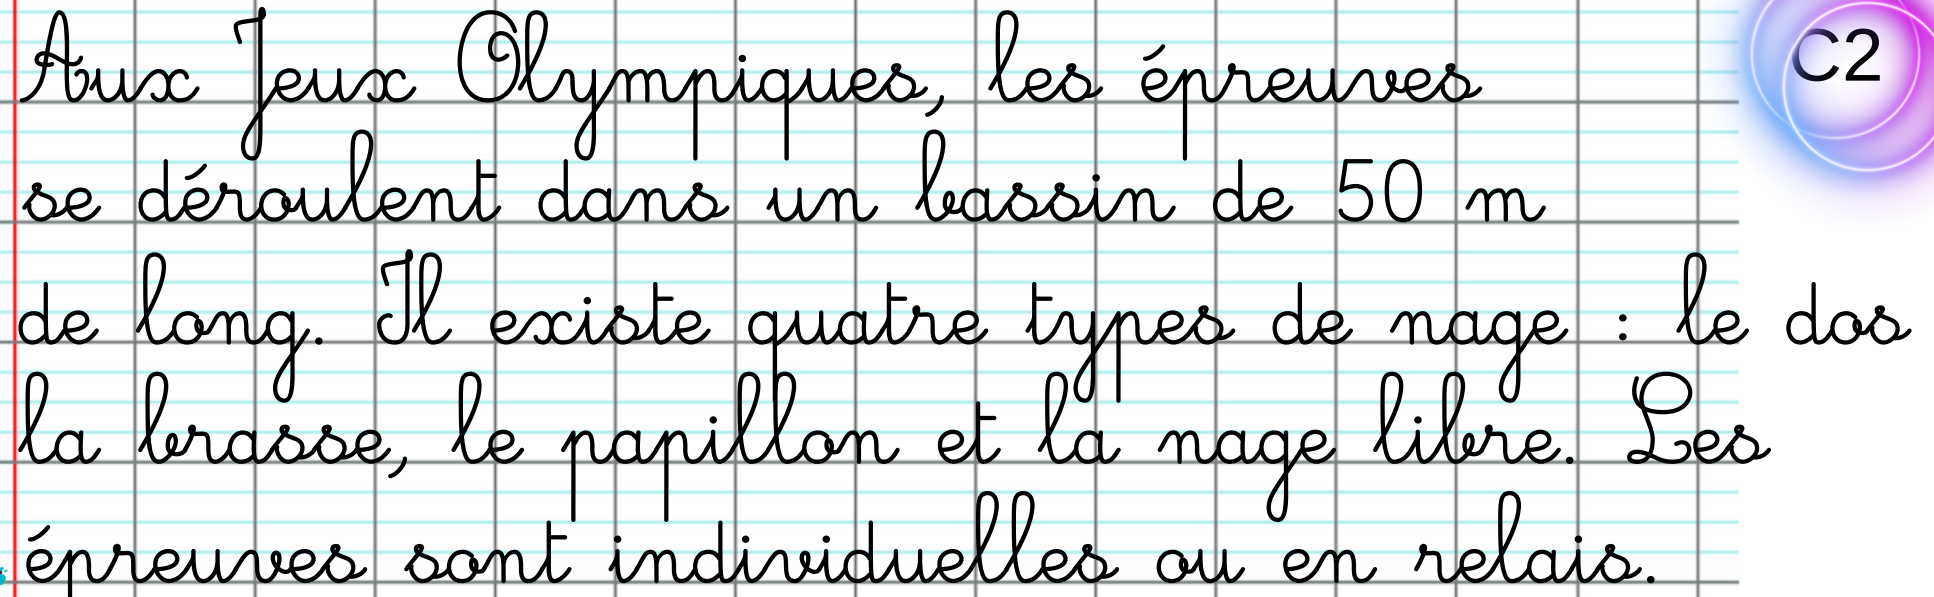 Aux Jeux Olympiques, les épreuves
C2
se déroulent dans un bassin de 50 m
de long. Il existe quatre types de nage : le dos
la brasse, le papillon et la nage libre. Les
épreuves sont individuelles ou en relais.